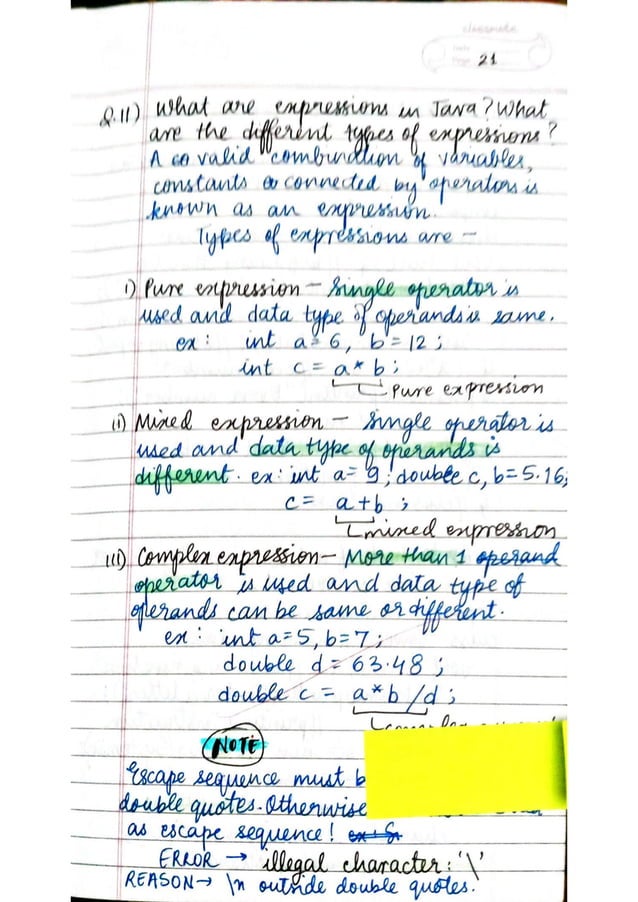 classmate
Date
Page 21
Q.11) What are expressions in Java? What
are the different types of expressions?
A co valid combination of variables,
constants connected by operators is
known as an expression.
Types of expressions are —
i) Pure expression – Single operator is
used and data type of operands is same.
ex: int a=6, b=12;
int c = a* b;
Pure expression
ii) Mixed expression – Single operator is
used and data type of operands is
different. ex: int a= 9; double c, b=5.16;
c= a+b ;
mixed expression
iii) Complex expression – More than 1 operand
operator is used and data type of
operands can be same or different.
ex: int a=5, b=7;
double d=63.48 ;
double c = a*b/d;
NOTE
Escape sequence must b
double quotes. Otherwise
as escape sequence!
ERROR → illegal character: '\'
REASON → \n outside double quotes.